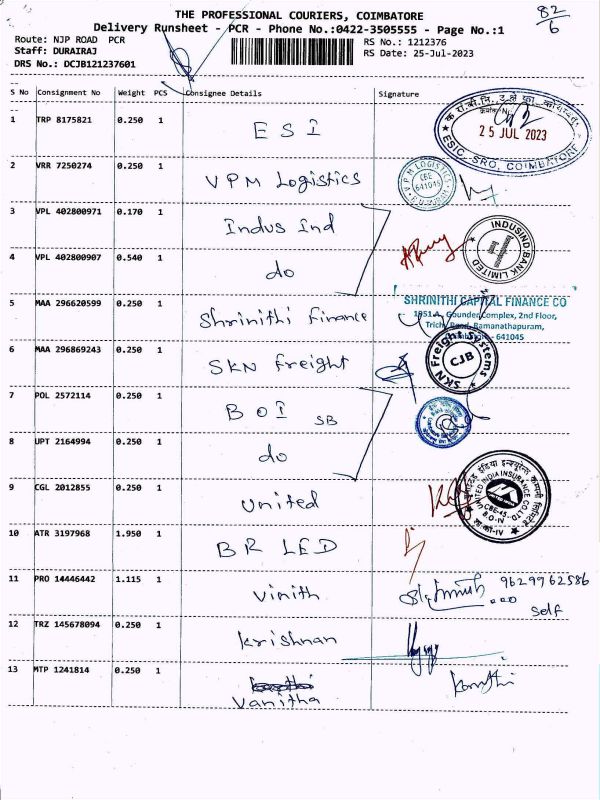 THE PROFESSIONAL COURIERS, COIMBATORE
82
6
Delivery Runsheet - PCR - Phone No.:0422-3505555 - Page No.:1
Route: NJP ROAD PCR
RS No.: 1212376
Staff: DURAIRAJ
RS Date: 25-Jul-2023
DRS No.: DCJB121237601
S No Consignment No Weight PCS Consignee Details Signature
1 TRP 8175821 0.250 1 ESI
25 JUL 2023
ESIC, SRO, COIMBATORE
2 VRR 7250274 0.250 1 VPM Logistics
VPM LOGISTICS
CBE
641045
3 VPL 402800971 0.170 1 Indus Ind
INDUSIND BANK LIMITED
4 VPL 402800907 0.540 1 do
5 MAA 296620599 0.250 1 Shrinithi Finance
SHRINITHI CAPITAL FINANCE CO
Gounder Complex, 2nd Floor,
Ramanathapuram,
641045
6 MAA 296869243 0.250 1 SKN Freight
SKN Freight Systems
CJB
7 POL 2572114 0.250 1 BOI SB
8 UPT 2164994 0.250 1 do
9 CGL 2012855 0.250 1 United
UNITED INDIA INSURANCE CO LTD
10 ATR 3197968 1.950 1 BR LED
11 PRO 14446442 1.115 1 Vinith
9629962586
self
12 TRZ 145678094 0.250 1 Krishnan
13 MTP 1241814 0.250 1
Vanitha